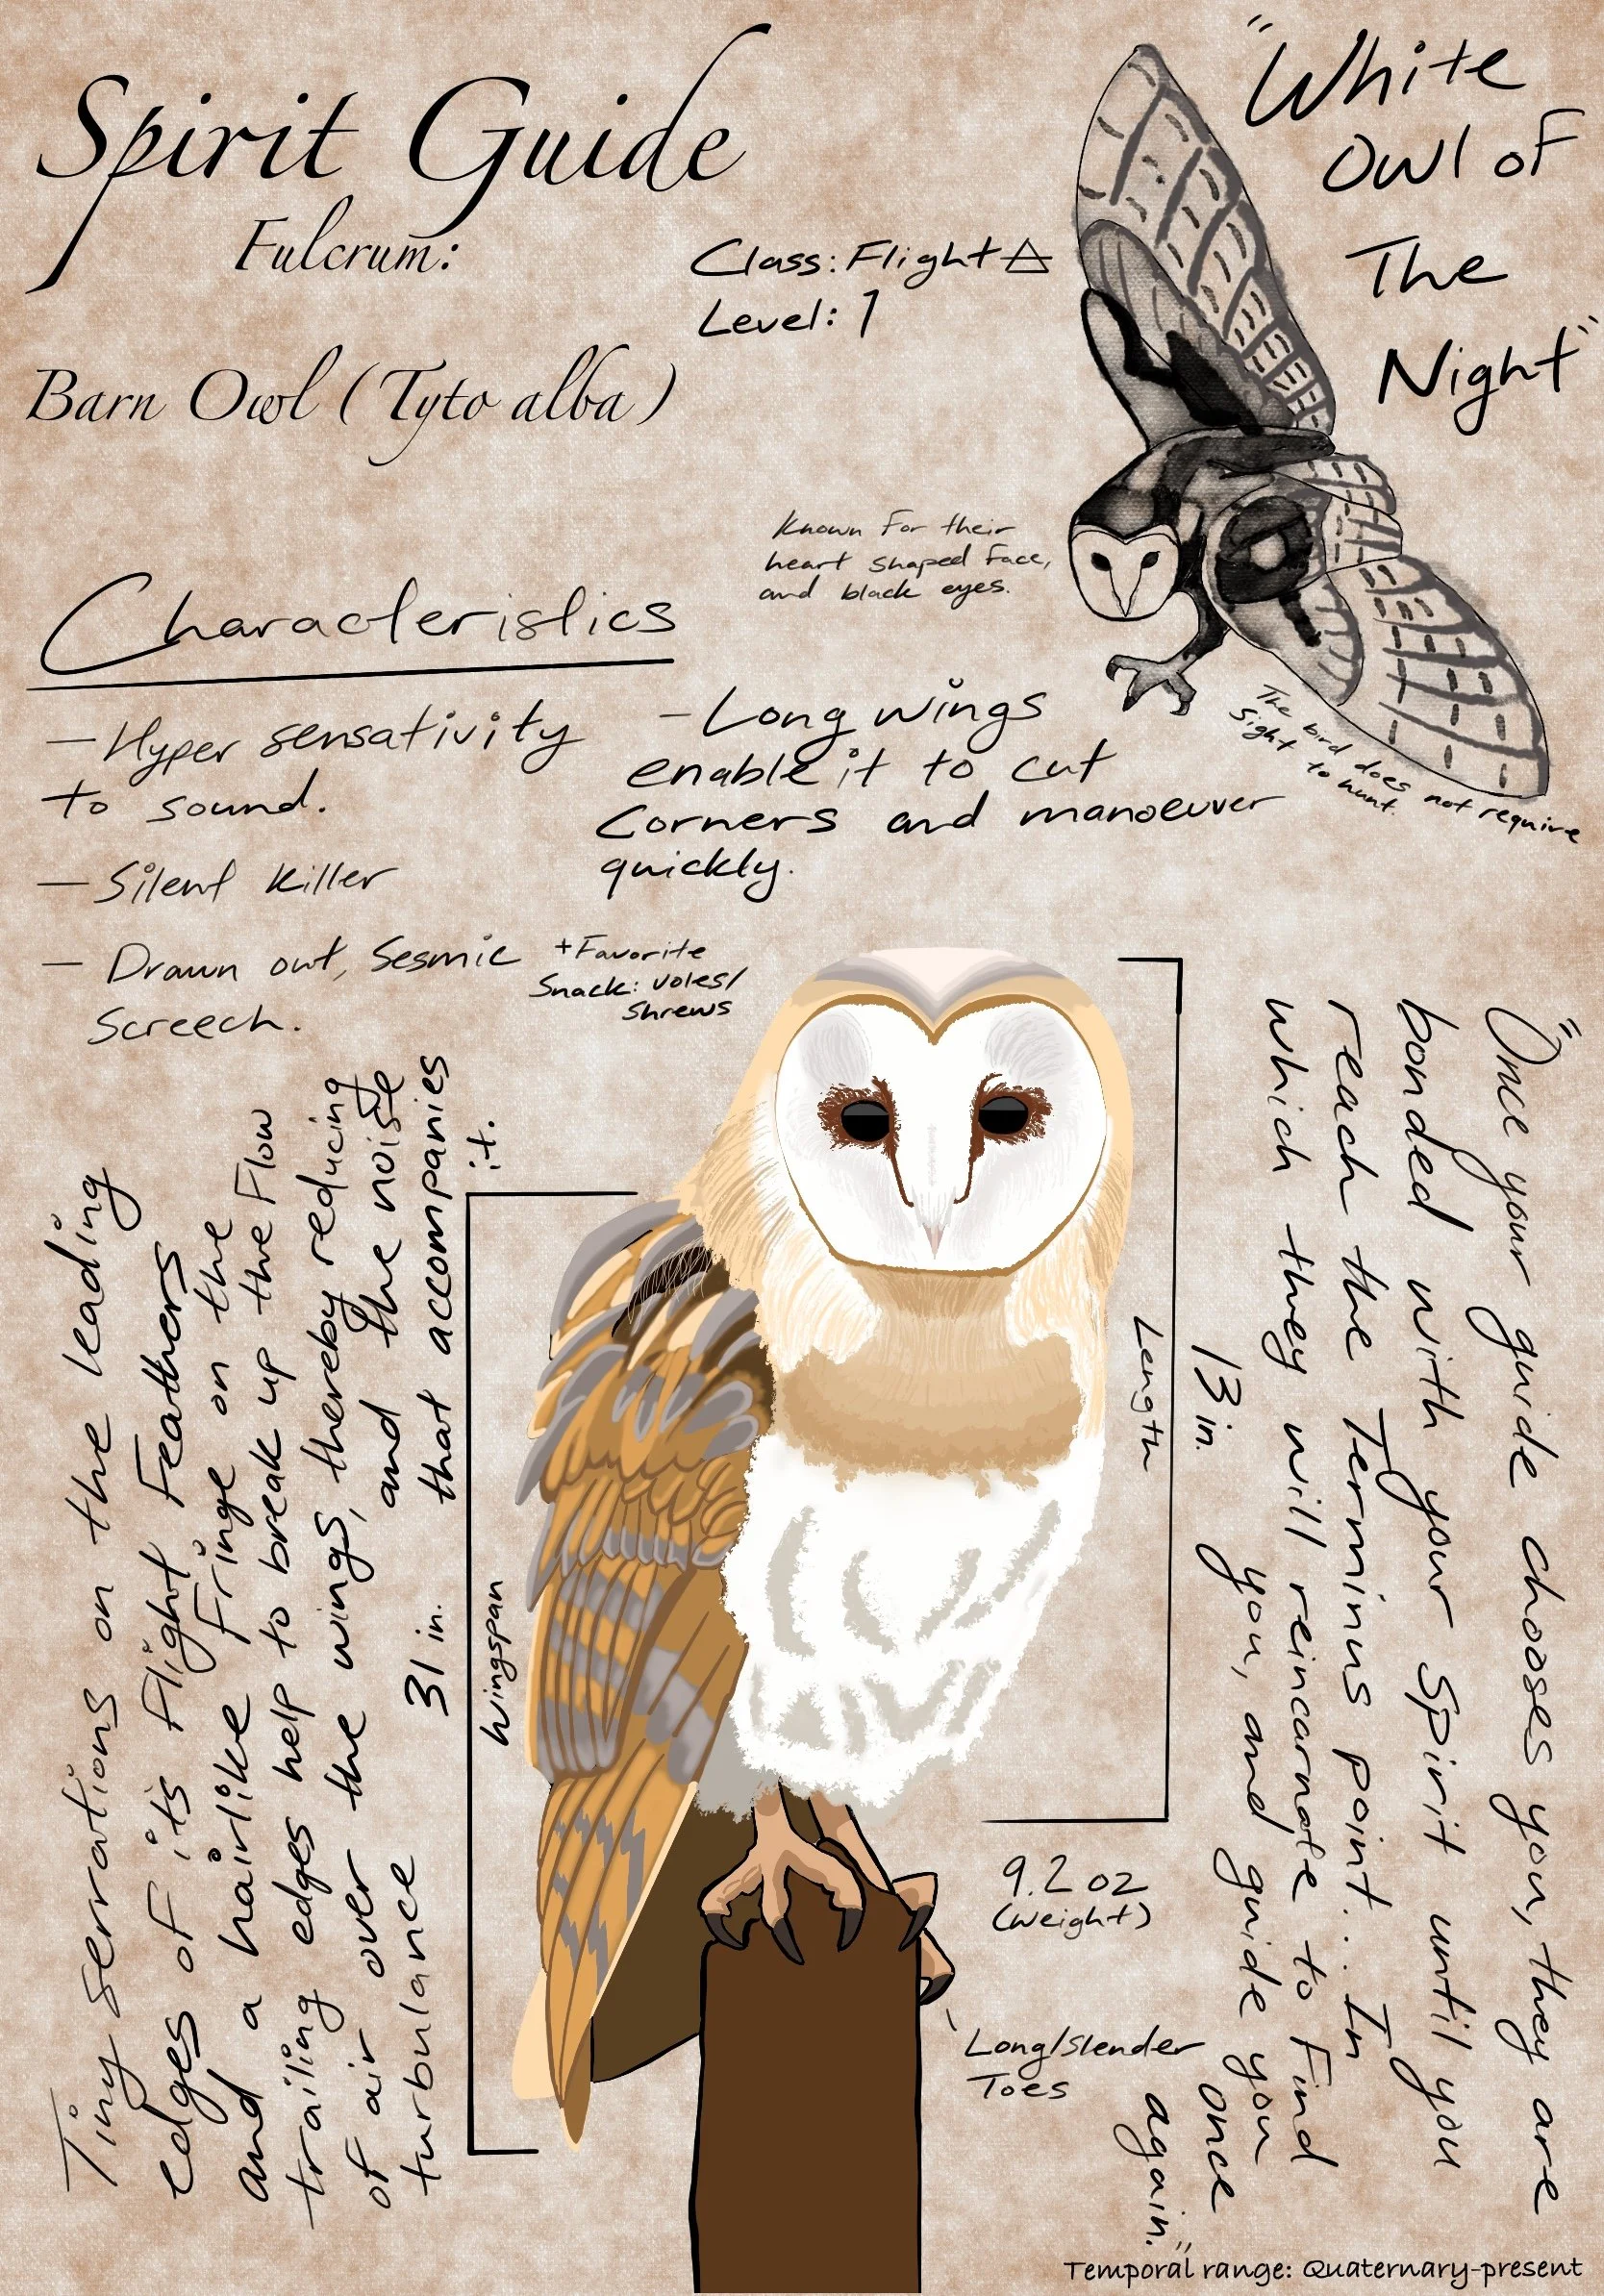 Spirit Guide
Fulcrum:
Barn Owl (Tyto alba)
Class: Flight
Level: 1
"White
Owl of
The
Night"
Known For their
heart shaped Face,
and black eyes.
The bird does not require
sight to hunt.
Characteristics
- Hyper sensativity
to sound.
- Silent Killer
- Drawn out, Sesmic
Screech.
- Long wings
enable it to cut
Corners and manoeuver
quickly.
+Favorite
Snack: voles/
shrews
Tiny serrations on the leading
edges of its flight Feathers
and a hairlike Fringe on the
trailing edges help to break up the Flow
of air over the wings, thereby reducing
turbulance and the noise
that accompanies
it.
31 in.
Wingspan
Length
13 in.
9.2 oz
(Weight)
Long/Slender
Toes
"Once your guide chooses you, they are
bonded with your Spirit until you
reach the Terminus point... In
which they will reincarnate to Find
you, and guide you
once
again."
Temporal range: Quaternary-present